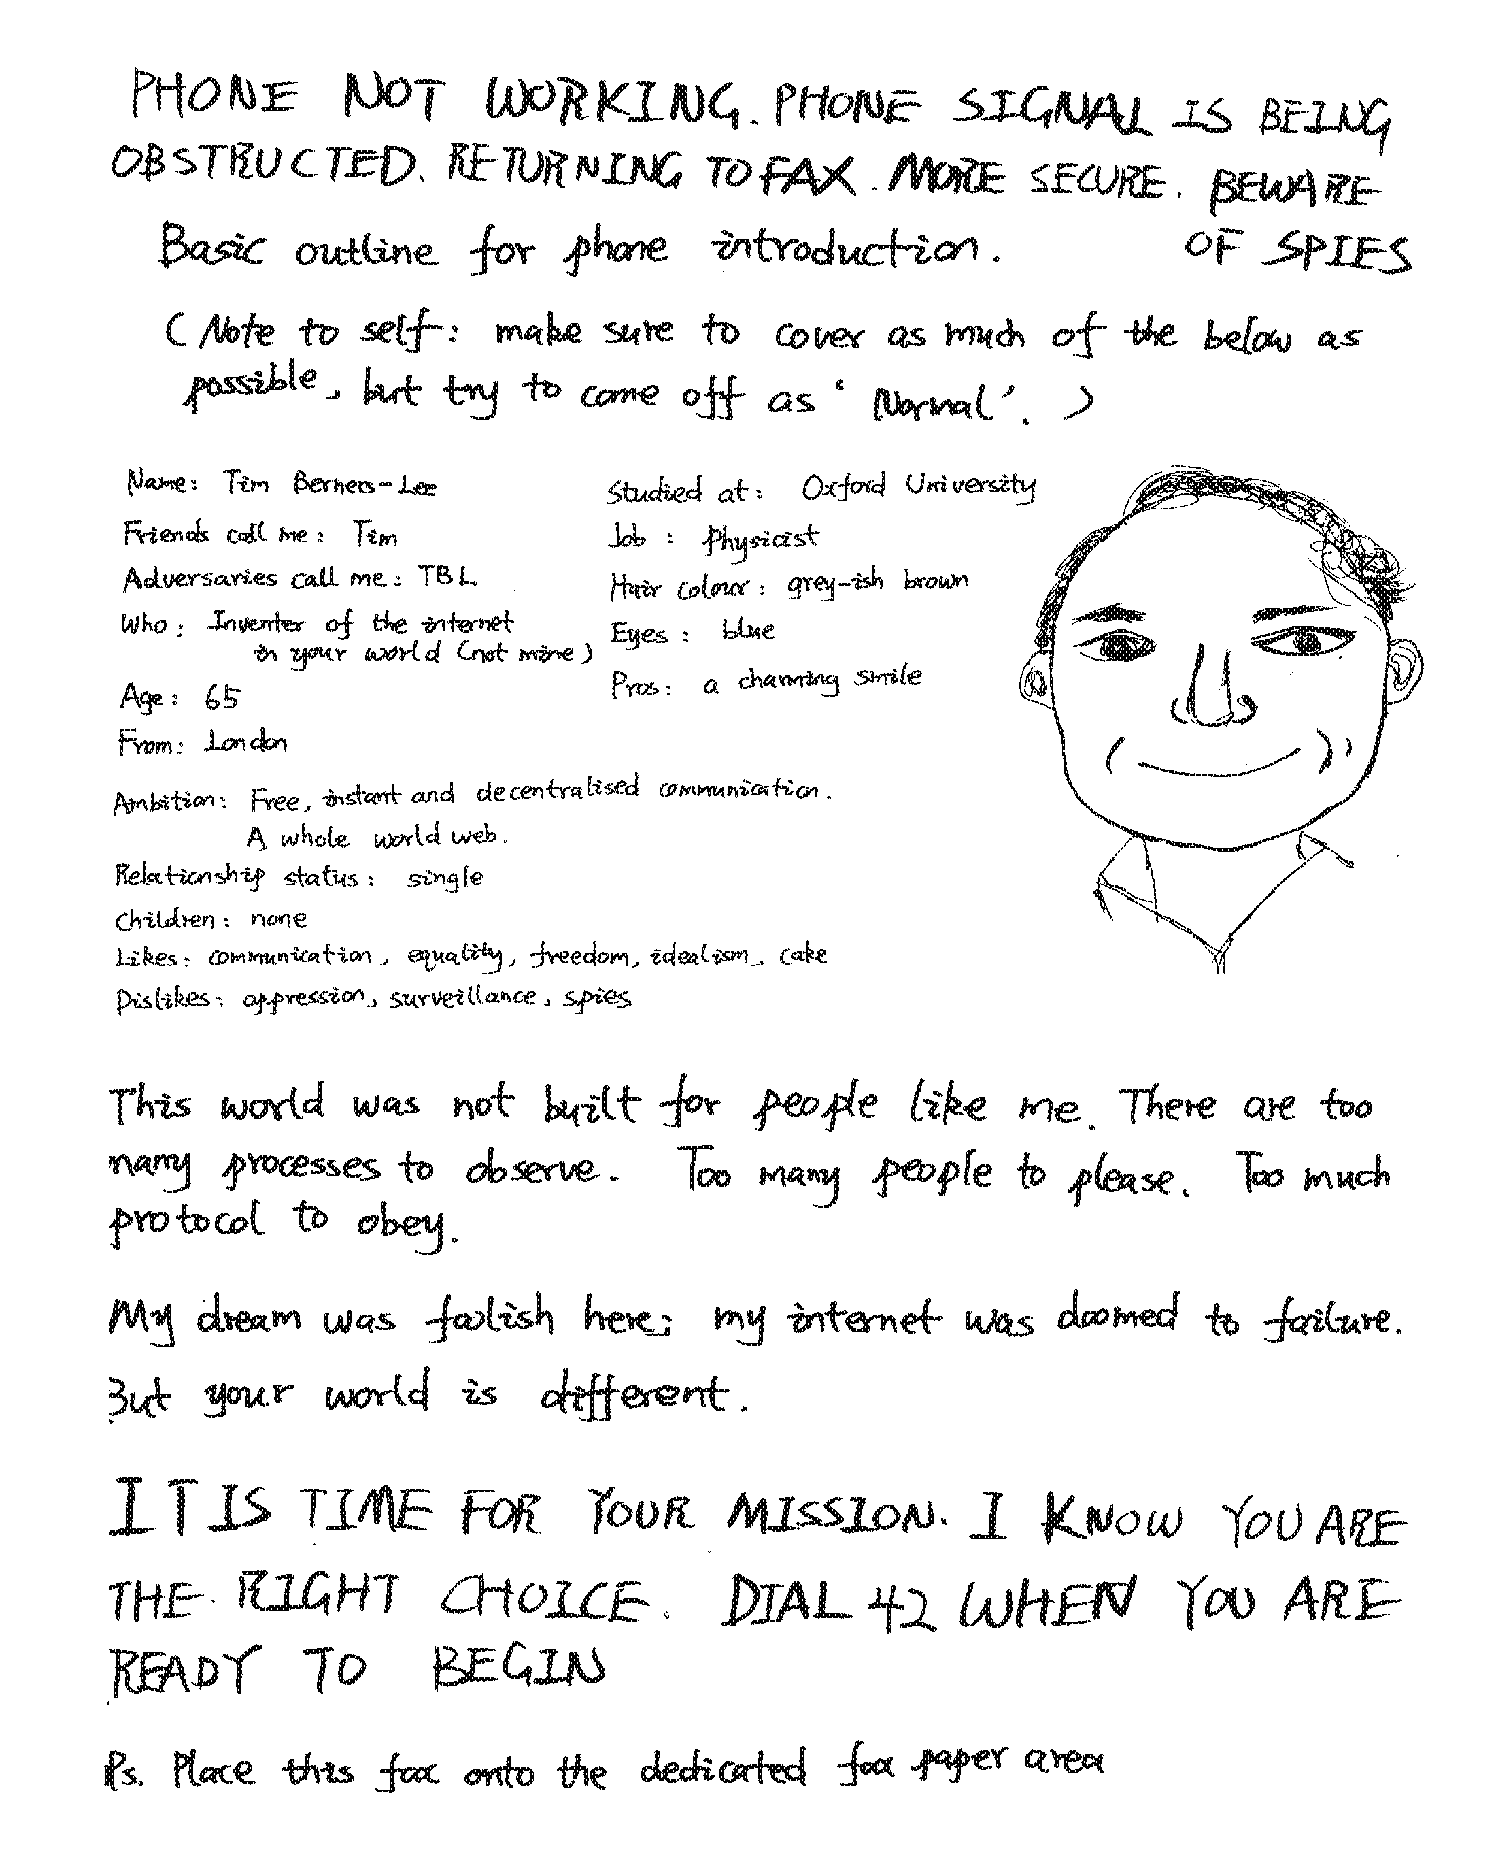 PHONE NOT WORKING. PHONE SIGNAL IS BEING
OBSTRUCTED. RETURNING TO FAX. MORE SECURE. BEWARE
OF SPIES
Basic outline for phone introduction.
(Note to self: make sure to cover as much of the below as
possible, but try to come off as 'Normal'.)
Name: Tim Berners-Lee
Friends call me: Tim
Adversaries call me: TBL
Who: Inventer of the internet
in your world (not mine)
Age: 65
From: London
Studied at: Oxford University
Job: physicist
Hair colour: grey-ish brown
Eyes: blue
Pros: a charming smile
Ambition: Free, instant and decentralised communication.
A whole world web.
Relationship status: single
Children: none
Likes: communication, equality, freedom, idealism, cake
Dislikes: oppression, surveillance, spies
This world was not built for people like me. There are too
many processes to observe. Too many people to please. Too much
protocol to obey.
My dream was foolish here; my internet was doomed to failure.
But your world is different.
IT IS TIME FOR YOUR MISSION. I KNOW YOU ARE
THE RIGHT CHOICE. DIAL 42 WHEN YOU ARE
READY TO BEGIN
Ps. Place this fax onto the dedicated fax paper area